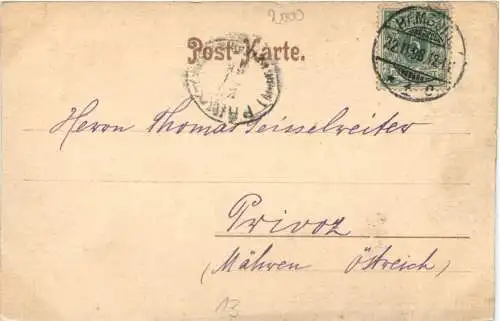 2000
Post-Karte.
Herrn Thomas Geisselreiter
Privoz
(Mähren Östreich)
13